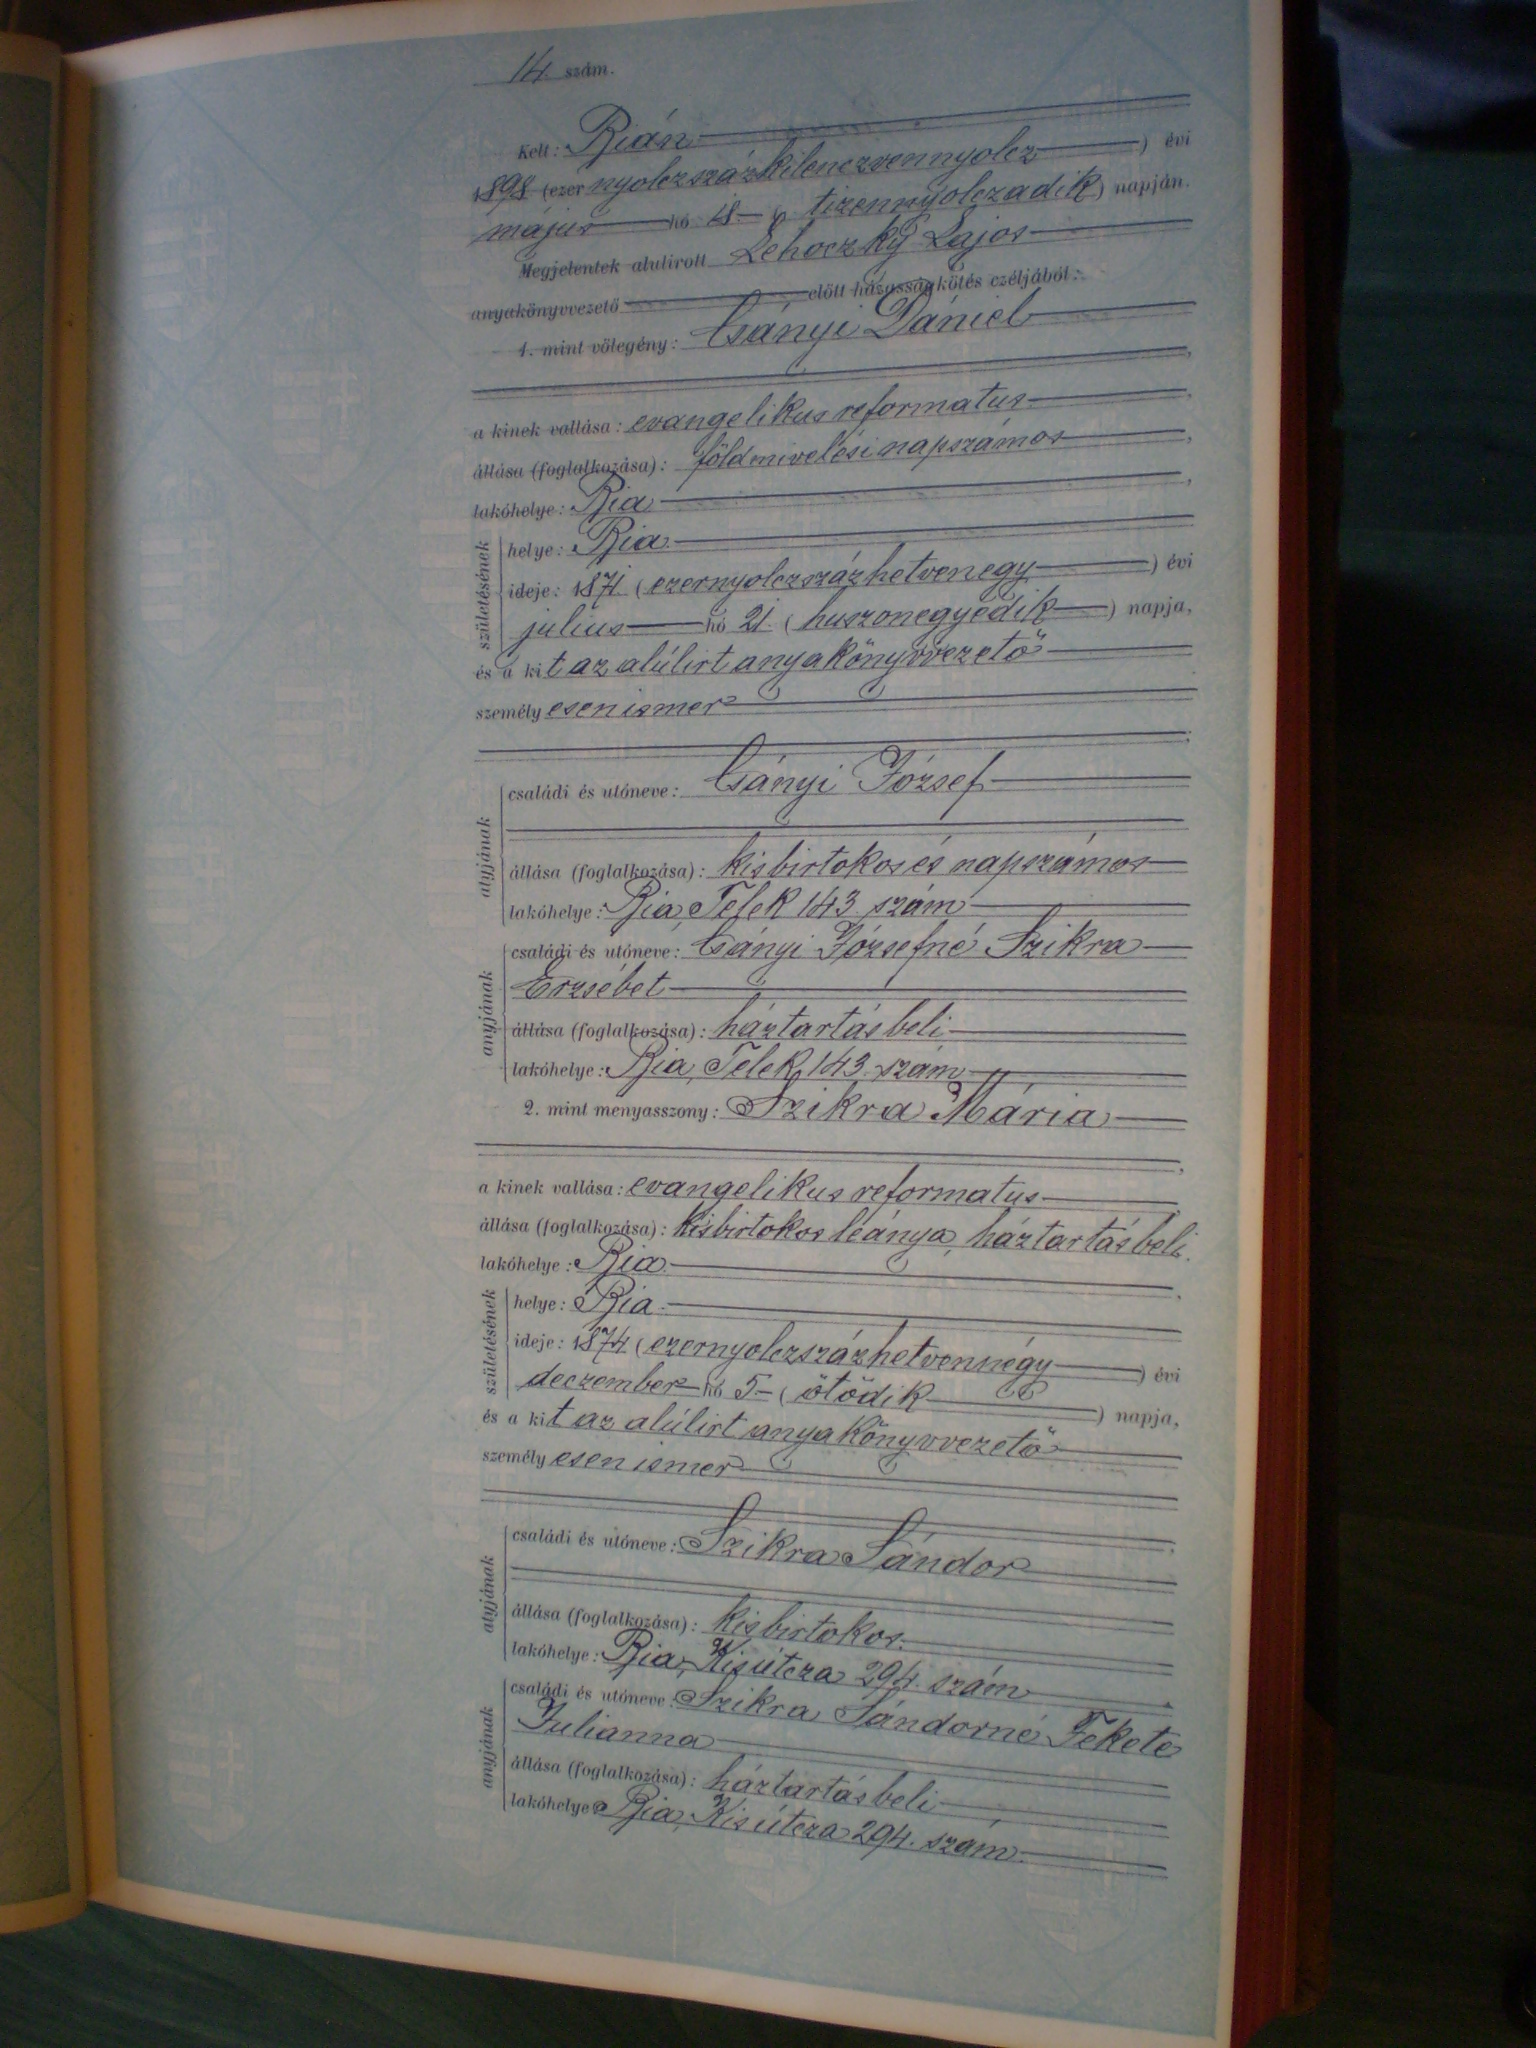 14. szám.
Kelt: Bián
1898 (ezer nyolczszázkilenczvennyolcz) évi
május hó 18 ( tizennyolczadik) napján.
Megjelentek alulirott Lehoczky Lajos
anyakönyvvezető előtt házasságkötés czéljából:
1. mint vőlegény: Csányi Dániel
a kinek vallása: evangelikus reformatus
állása (foglalkozása): földmivelési napszámos
lakóhelye: Bia
születésének
helye: Bia
ideje: 1871. (ezernyolczszázhetvenegy) évi
julius hó 21. (huszonegyedik) napja,
és a kit az alúlirt anyakönyvvezető
személyesen ismer
atyjának
családi és utóneve: Csányi József
állása (foglalkozása): kisbirtokos és napszámos
lakóhelye: Bia, Telek 143. szám
anyjának
családi és utóneve: Csányi Józsefné Szikra
Erzsébet
állása (foglalkozása): háztartásbeli
lakóhelye: Bia, Telek 143. szám
2. mint menyasszony: Szikra Mária
a kinek vallása: evangelikus reformatus
állása (foglalkozása): kisbirtokos leánya, háztartásbeli.
lakóhelye: Bia
születésének
helye: Bia
ideje: 1874 (ezernyolczszázhetvennégy) évi
deczember hó 5 (ötödik) napja,
és a kit az alúlirt anyakönyvvezető
személyesen ismer
atyjának
családi és utóneve: Szikra Sándor
állása (foglalkozása): kisbirtokos.
lakóhelye: Bia, Kisútcza 294. szám
anyjának
családi és utóneve: Szikra Sándorné Fekete
Julianna
állása (foglalkozása): háztartásbeli
lakóhelye: Bia, Kisútcza 294. szám